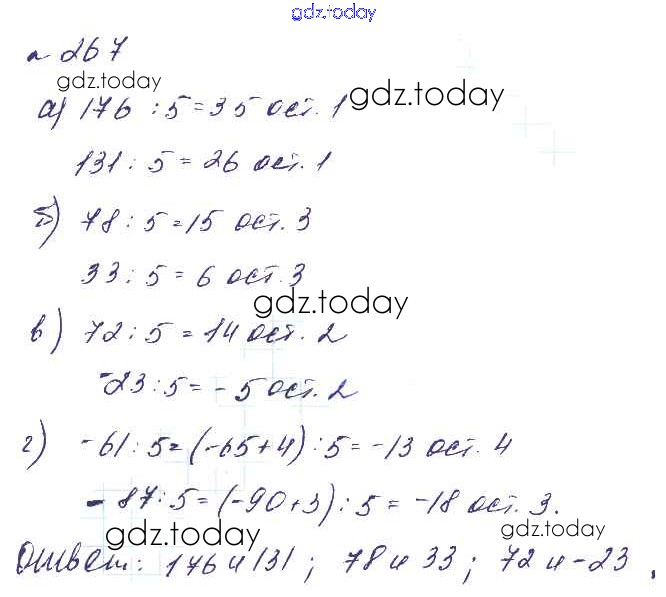 gdz.today
№ 267
gdz.today
а) 176 : 5 = 35 ост. 1 gdz.today
131 : 5 = 26 ост. 1
б) 78 : 5 = 15 ост. 3
33 : 5 = 6 ост. 3
gdz.today
в) 72 : 5 = 14 ост. 2
-23 : 5 = -5 ост. 2
г) -61 : 5 = (-65+4) : 5 = -13 ост. 4
-87 : 5 = (-90+3) : 5 = -18 ост. 3.
gdz.today gdz.today
Ответ: 176 и 131 ; 78 и 33 ; 72 и -23 ,